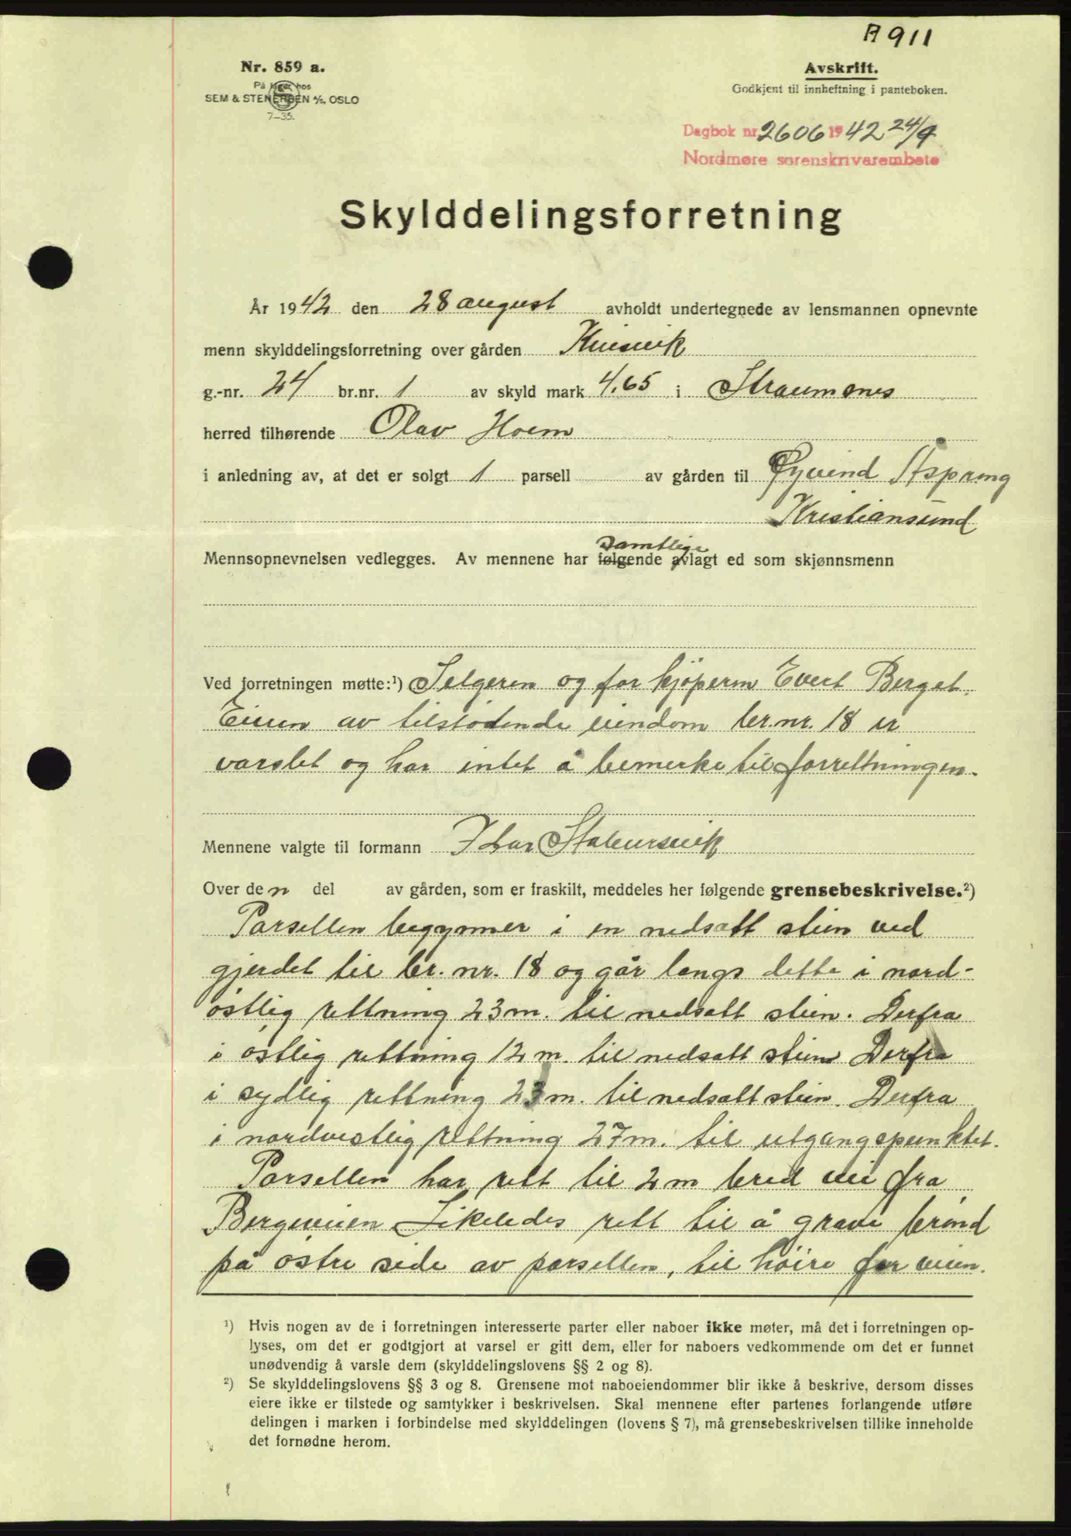 A 911
Nr. 859 a.
På lager hos
S
SEM & STENERSEN A/S, OSLO
7-35.
Avskrift.
Godkjent til innheftning i panteboken.
Dagbok nr. 2606 1942 24/9
Nordmøre sorenskrivarembete
Skylddelingsforretning
År 1942 den 28 august avholdt undertegnede av lensmannen opnevnte
menn skylddelingsforretning over gården Kvisvik
g.-nr. 24 br.nr. 1 av skyld mark 4,65 i Straumsnes
herred tilhørende Olav Hoem
i anledning av, at det er solgt 1 parsell av gården til Øyvind Asprong
Kristiansund
samtlige
Mennsopnevnelsen vedlegges. Av mennene har følgende avlagt ed som skjønnsmenn
Ved forretningen møtte:¹) Selgeren og for kjøperen Evert Berget.
Eieren av tilstødende eiendom br.nr. 18 er
varslet og har intet å bemerke til forrettningen.
Mennene valgte til formann Ivar Stabursvik
Over den del av gården, som er fraskilt, meddeles her følgende grensebeskrivelse.²)
Parsellen begynner i en nedsatt stein ved
gjerdet til br. nr. 18 og går langs dette i nord-
østlig rettning 23 m. til nedsatt stein. Derfra
i østlig rettning 12 m. til nedsatt stein Derfra
i sydlig rettning 23 m. til nedsatt stein. Derfra
i nordvestlig rettning 27 m. til utgangspunktet.
Parsellen har rett til 2 m bred vei fra
Bergeveien Likeledes rett til å grave brønd
på østre side av parsellen, til høire for veien.
¹) Hvis nogen av de i forretningen interesserte parter eller naboer ikke møter, må det i forretningen op-
lyses, om det er godtgjort at varsel er gitt dem, eller for naboers vedkommende om det er funnet
unødvendig å varsle dem (skylddelingslovens §§ 2 og 8).
²) Se skylddelingslovens §§ 3 og 8. Grensene mot naboeiendommer blir ikke å beskrive, dersom disses
eiere ikke er tilstede og samtykker i beskrivelsen. Skal mennene efter partenes forlangende utføre
delingen i marken i forbindelse med skylddelingen (lovens § 7), må grensebeskrivelsen tillike inneholde
det fornødne herom.